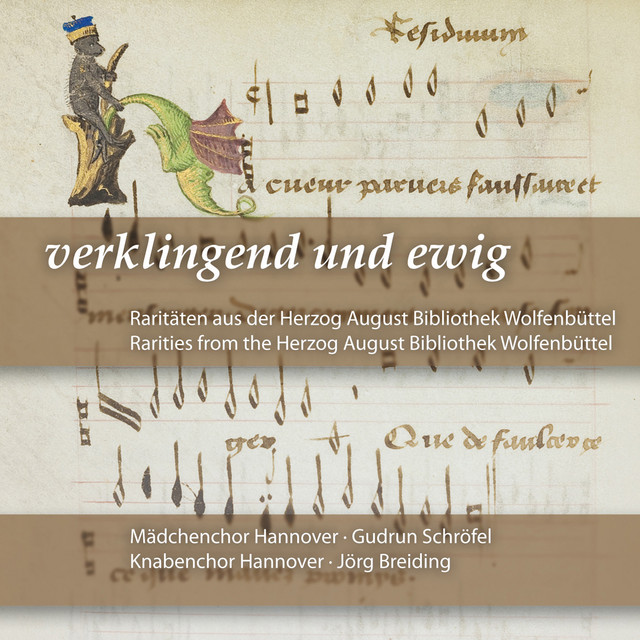 Residuum
cueur parvers faulsaire et
verklingend und ewig
Raritäten aus der Herzog August Bibliothek Wolfenbüttel
Rarities from the Herzog August Bibliothek Wolfenbüttel
ger Que de faulcer ce
Mädchenchor Hannover · Gudrun Schröfel
Knabenchor Hannover · Jörg Breiding
ce que